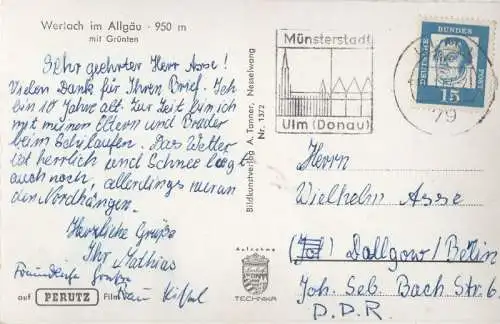 Wertach im Allgäu · 950 m
mit Grünten
Sehr geehrter Herr Asse!
Vielen Dank für Ihren Brief. Ich
bin 10 Jahre alt. Zur Zeit bin ich
mit meinen Eltern und Bruder
beim Schilaufen. Das Wetter
ist herrlich und Schnee liegt
auch noch, allerdings nur an
den Nordhängen.
Herzliche Grüße
Ihr Mathias
Freundliche Grüße
auf PERUTZ Film
Bildkunstverlag A. Tanner, Nesselwang
Nr. 1372
Aufnahme
TECHNIKA
Münsterstadt
Ulm (Donau)
79
DEUTSCHE
BUNDES
POST
15
Herrn
Wielhelm Asse
Dallgow/Belin
Joh. Seb. Bach Str. 6
D.D.R.